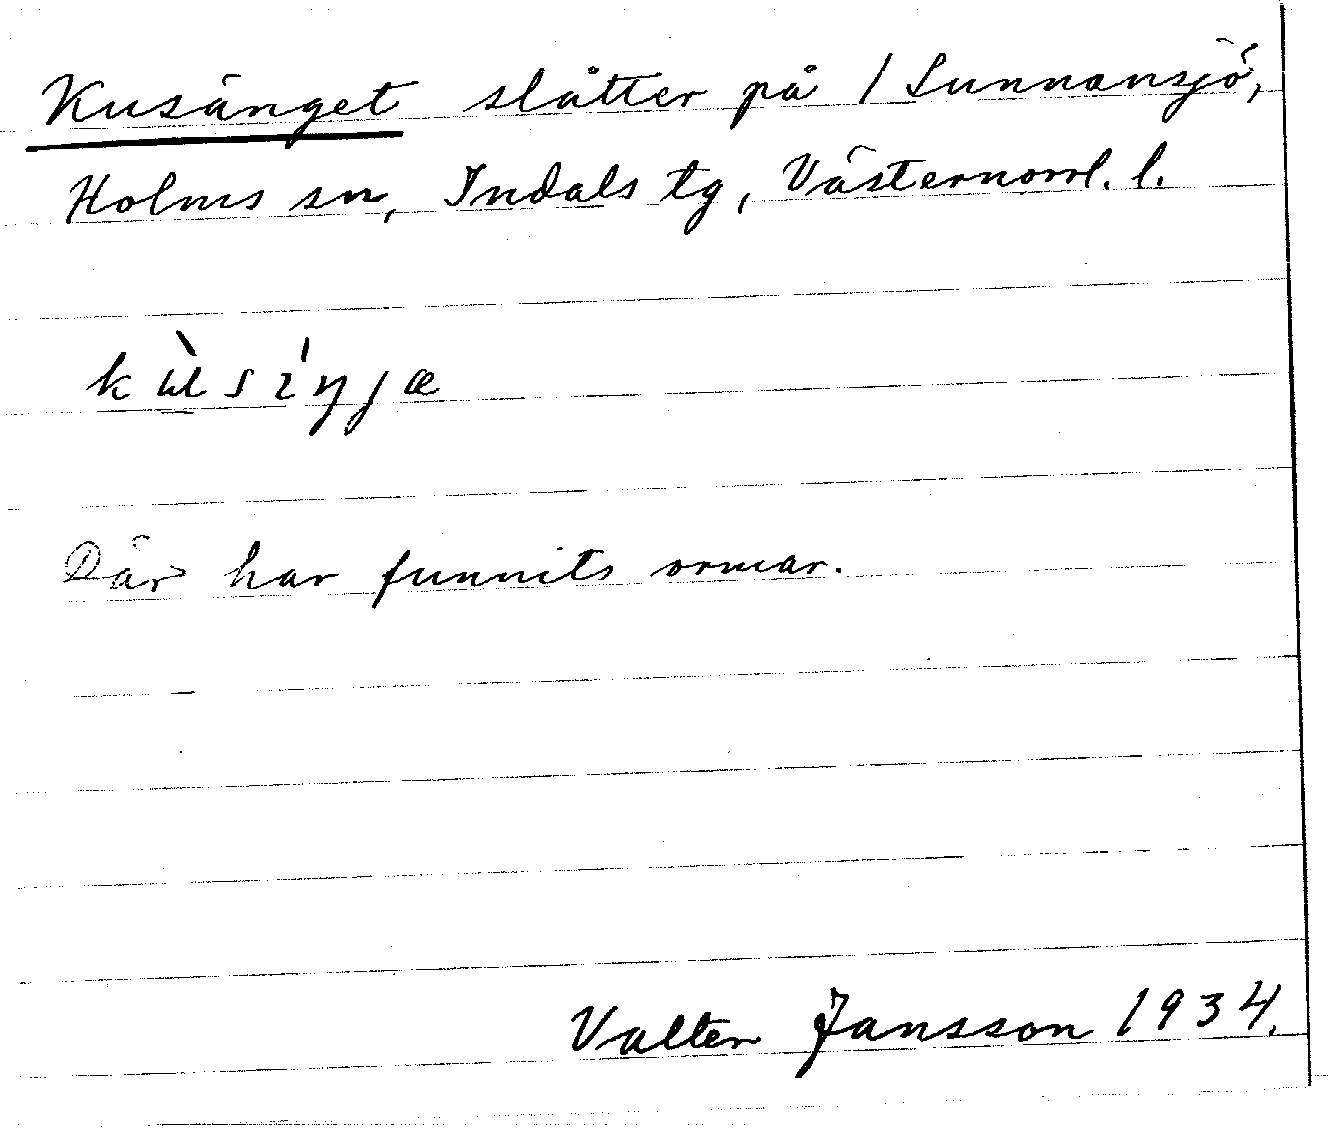 Kusänget slåtter på 1 Sunnansjö,
Holms sn, Indals tg, Västernorrl. l.
kùsiŋjæ
Där har funnits ormar.
Valter Jansson 1934.